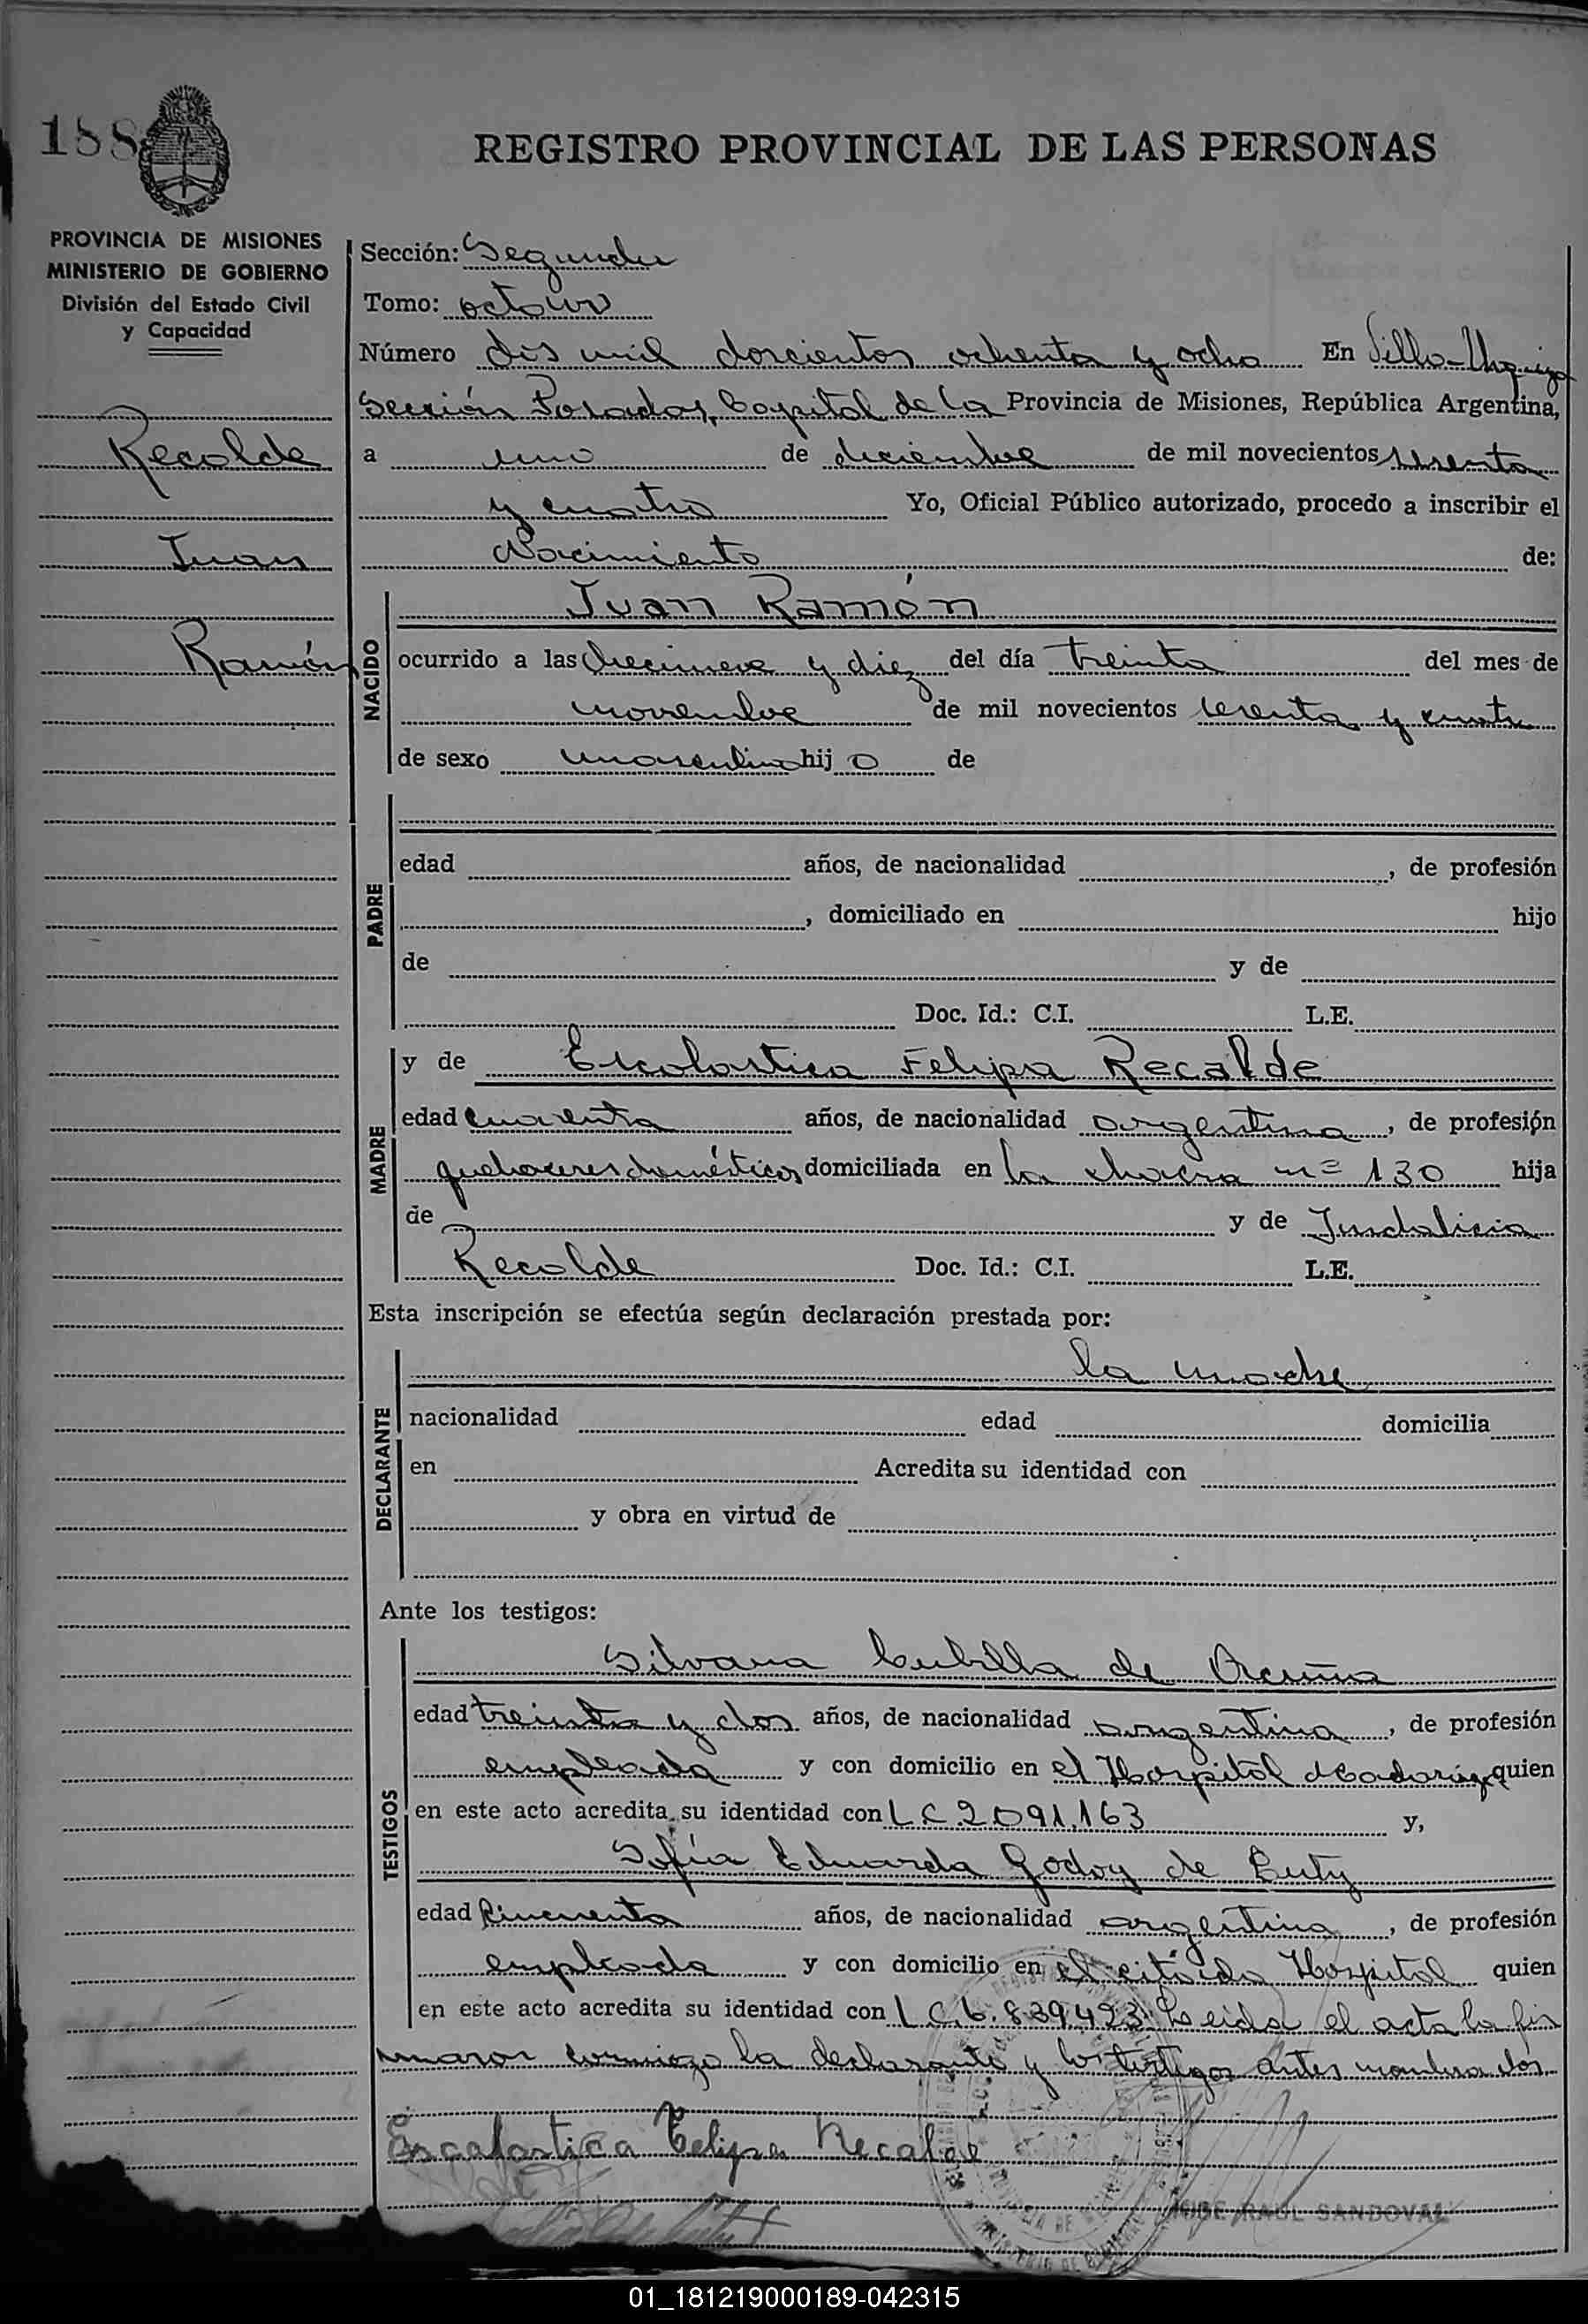 188
REGISTRO PROVINCIAL DE LAS PERSONAS
PROVINCIA DE MISIONES
MINISTERIO DE GOBIERNO
División del Estado Civil
y Capacidad
Recalde
Juan
Ramón
Sección: Segunda
Tomo: octavo
Número dos mil doscientos ochenta y ocho En Villa-Urquiza
Sección Posadas, Capital de la Provincia de Misiones, República Argentina,
a uno de diciembre de mil novecientos sesenta
y cuatro Yo, Oficial Público autorizado, procedo a inscribir el
Nacimiento de:
NACIDO
Juan Ramón
ocurrido a las diecinueve y diez del día treinta del mes de
noviembre de mil novecientos sesenta y cuatro
de sexo masculino hij o de
PADRE
edad años, de nacionalidad , de profesión
, domiciliado en hijo
de y de
Doc. Id.: C.I. L.E.
MADRE
y de Escolastica Felipa Recalde
edad cuarenta años, de nacionalidad argentina, de profesión
quehaceres domésticos domiciliada en la chacra nº 130 hija
de y de Indalicia
Recalde Doc. Id.: C.I. L.E.
Esta inscripción se efectúa según declaración prestada por:
DECLARANTE
la madre
nacionalidad edad domicilia
en Acredita su identidad con
y obra en virtud de
Ante los testigos:
TESTIGOS
Silvana Cubilla de Acuña
edad treinta y dos años, de nacionalidad argentina, de profesión
empleada y con domicilio en el Hospital Madariaga quien
en este acto acredita su identidad con L.C. 2.091.163 y,
Sofía Eduarda Godoy de
edad Cincuenta años, de nacionalidad argentina, de profesión
empleada y con domicilio en el citado Hospital quien
en este acto acredita su identidad con L.C. 6.839.423. Leida el acta la fir
maron conmigo la declarante y los testigos antes nombrados
Escalastica Felipa Recalde
JOSE RAUL SANDOVAL
01_181219000189-042315